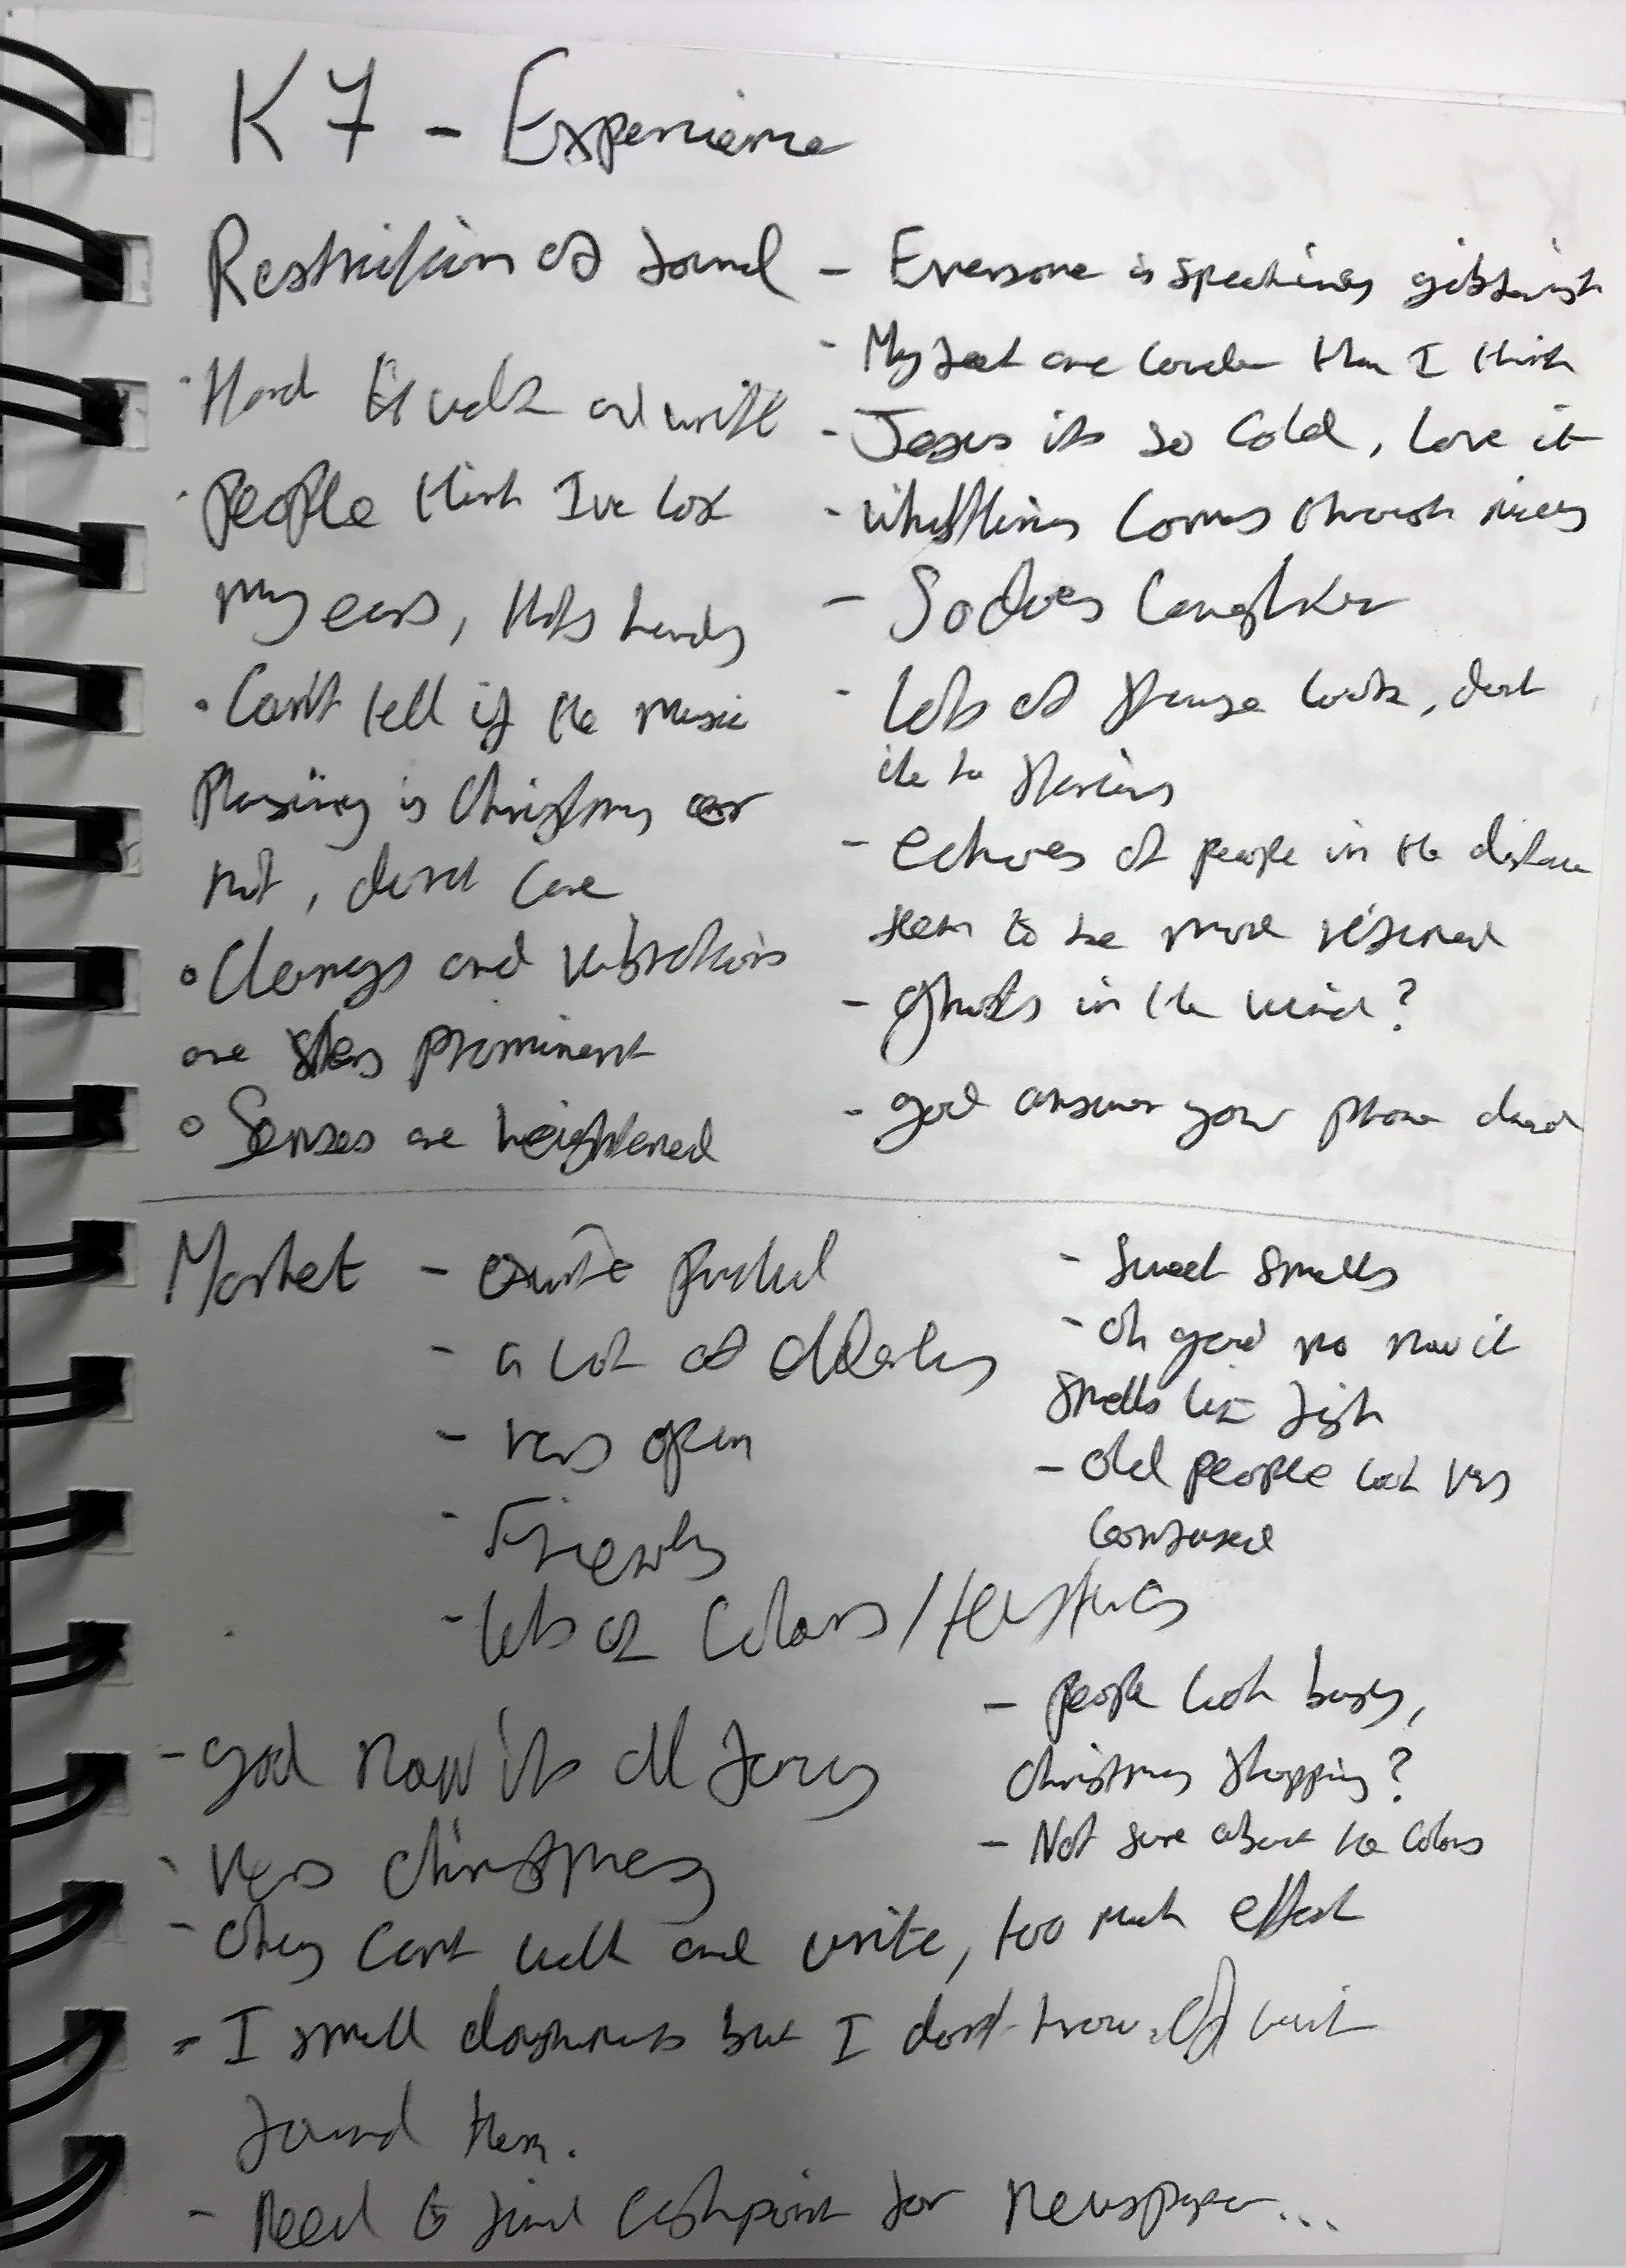 K7 - Experience
Restriction of sound
· Hard to walk and write
· people think I've lost
my ears, that's handy
· Can't tell if the music
Playing is Christmas or
not, don't care
· Clangs and vibrations
are prominent
· Senses are heightened
- Everyone is speaking gibberish
- My feet are louder than I think
- Jesus its so cold, love it
- Whistling comes through nicely
- So does laughter
- Lots of strange looks, dont
like to staring
- echoes of people in the distance
seem to be more refined
- ghosts in the wind?
- god answer your phone dead
Market - Quite packed
- a lot of elderly
- very open
- Friendly
- lots of colors/textures
- god now its all fancy
- Very christmasy
- Okay cant walk and write, too much effort
- I smell doughnuts but I dont know. Oh wait
found them.
- Need to find cashpoint for newspaper...
- Sweet smells
- oh god no now it
smells like fish
- old people look very
confused
- people look busy,
christmas shopping?
- Not sure about the colors